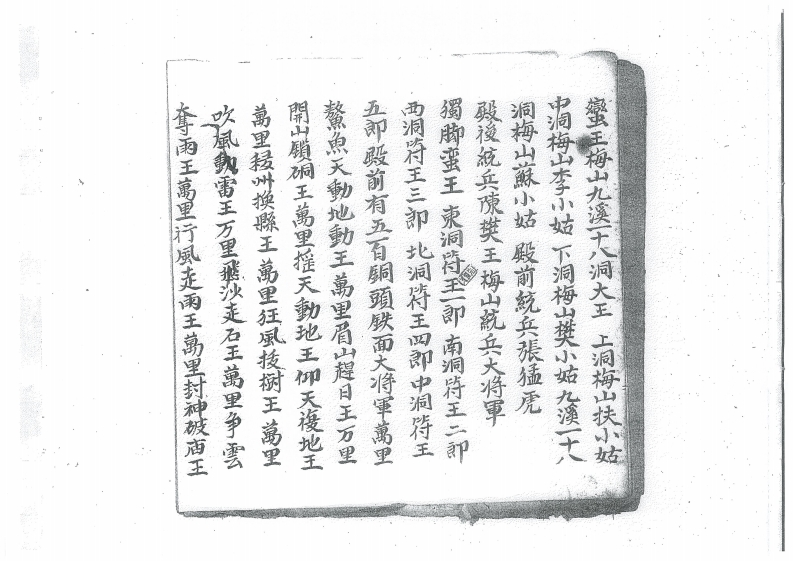 蠻王梅山九溪一十八洞大王 上洞梅山扶小姑
中洞梅山李小姑 下洞梅山樊小姑 九溪一十八
洞梅山蘇小姑 殿前統兵張猛虎
殿後統兵陳樊王 梅山統兵大将軍
獨脚蛮王 東洞符王一郎 南洞符王二郎
西洞符王三郎 北洞符王四郎 中洞符王
五郎 殿前有五百銅頭鉄面大将軍 萬里
鰲魚天動地動王 萬里眉山趕日王 万里
開山鎖硐王 萬里摇天動地王 仰天複地王
萬里 州換縣王 萬里狂風拔樹王 萬里
吹風動雷王 万里飛沙走石王 萬里争雲
奪雨王 萬里行風走雨王 萬里封神破庙王